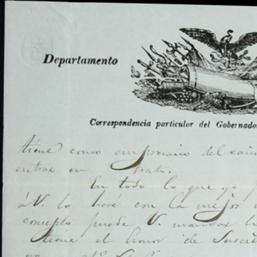 Departamento
Correspondencia particular del Gobernado
tiene como empresario del cami
entrar en trato.
En todo lo que ya
á V. lo hace con la mejor
concepto puede V. mandar
tiene el honor de suscri